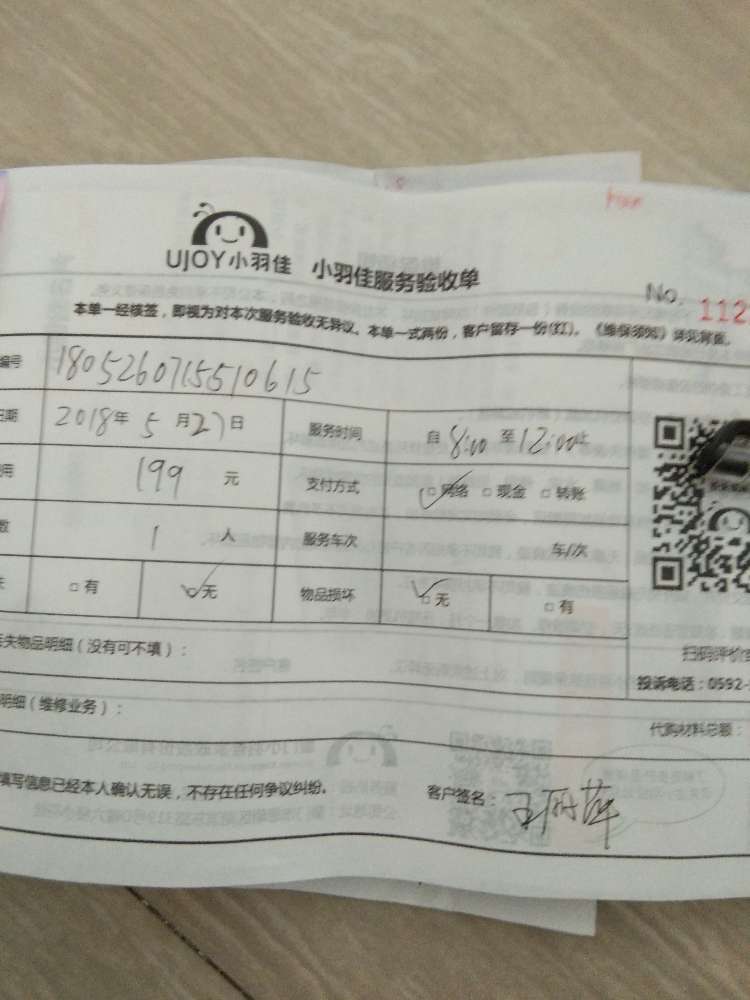 UJOY小羽佳 小羽佳服务验收单
No. 112
本单一经核签，即视为对本次服务验收无异议。本单一式两份，客户留存一份(红)。《维保须知》详见背面。
编号 180526071551 0615
日期 2018年5月27日 服务时间 自8:00至12:00止
用 199元 支付方式 网络 现金 转账
数 1人 服务车次 车/次
失 有 无 物品损坏 无 有
丢失物品明细（没有可不填）：
扫码评价
投诉电话：0592-
明细（维修业务）：
代购材料总额：
填写信息已经本人确认无误，不存在任何争议纠纷。 客户签名：王丽萍